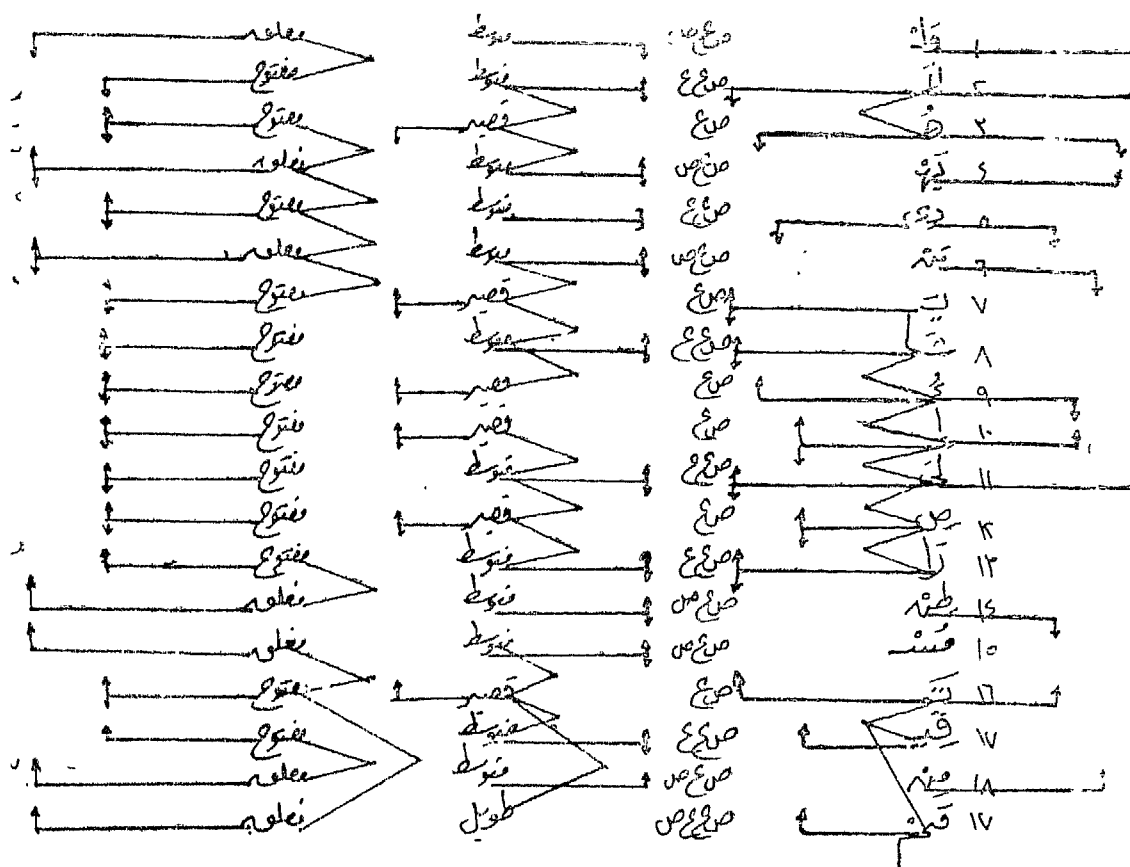 ١ وَلْ ص ع ص متوسط مغلق
٢ لَا ص ع ع متوسط مفتوح
٣ هُ ص ع قصير مفتوح
٤ يَهْ ص ع ص متوسط مغلق
٥ دِي ص ع ع متوسط مفتوح
٦ مَنْ ص ع ص متوسط مغلق
٧ يَـ ص ع قصير مفتوح
٨ شَا ص ع ع متوسط مفتوح
٩ ءُ ص ع قصير مفتوح
١٠ إِ ص ع قصير مفتوح
١١ لَى ص ع ع متوسط مفتوح
١٢ صِ ص ع قصير مفتوح
١٣ رَا ص ع ع متوسط مفتوح
١٤ طِنْ ص ع ص متوسط مغلق
١٥ مُسْـ ص ع ص متوسط مغلق
١٦ تَـ ص ع قصير مفتوح
١٧ قِيـ ص ع ع متوسط مفتوح
١٨ مِنْ ص ع ص متوسط مغلق
١٧ قِيمْ ص ع ع ص طويل مغلق